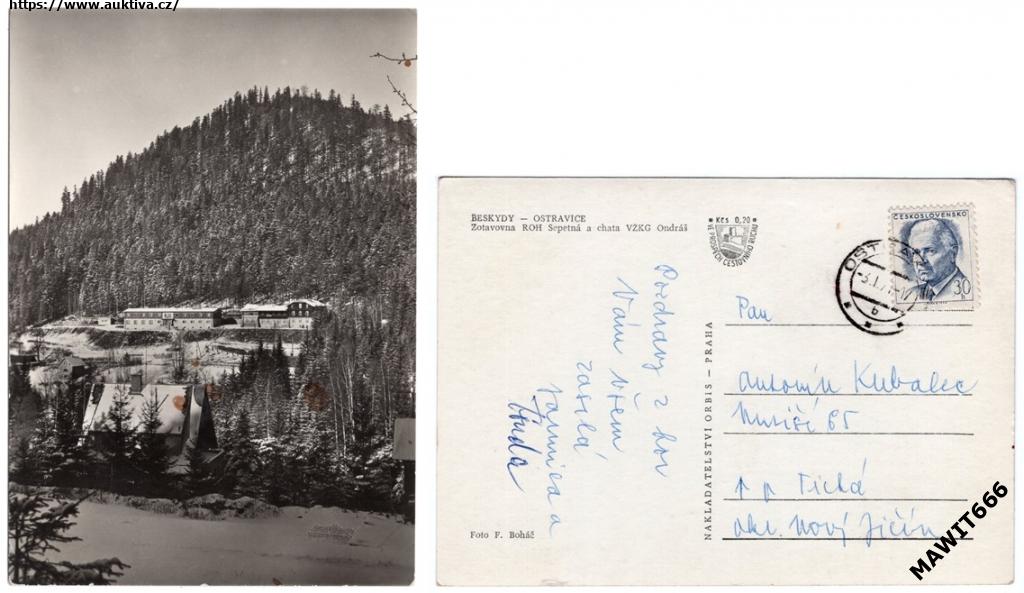 https://www.auktiva.cz/
BESKYDY — OSTRAVICE
Zotavovna ROH Sepetná a chata VŽKG Ondráš
Kčs 0,20
VE PROSPĚCH CESTOVNÍHO RUCHU
ČESKOSLOVENSKO
30
h
b
Pozdravy z hor
Vám všem
zasílá
a
NAKLADATELSTVÍ ORBIS — PRAHA
Pan
Antonín Kubalec
65
p Tichá
okr. Nový Jičín
Foto F. Boháč
MAWIT666